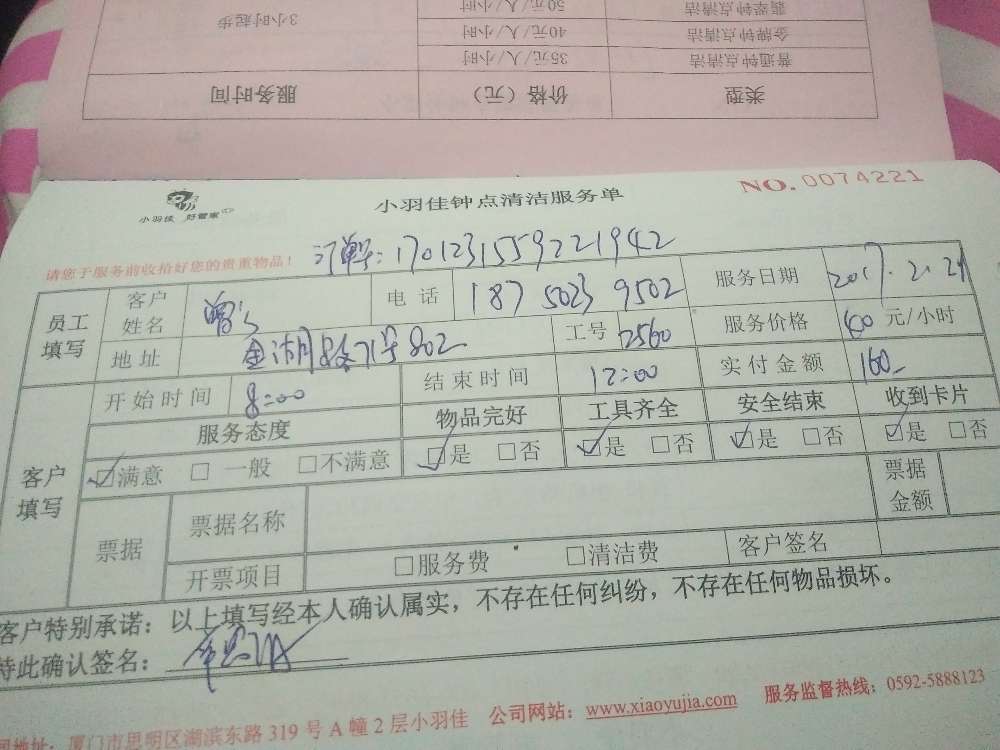 类型 价格（元） 服务时间
普通钟点清洁 35元/人/小时
金牌钟点清洁 40元/人/小时 3小时起步
翡翠钟点清洁 50元/人/小时
小羽佳 好管家
小羽佳钟点清洁服务单
NO.0074221
请您于服务前收拾好您的贵重物品！
订单号：170123155922 1942
员工填写 客户姓名 电话 187 5023 9502 服务日期 2017.2.24
地址 金湖路71号802 工号 2560 服务价格 40 元/小时
开始时间 8:00 结束时间 12:00 实付金额 160
客户填写 服务态度 物品完好 工具齐全 安全结束 收到卡片
☑满意 □一般 □不满意 ☑是 □否 ☑是 □否 ☑是 □否 ☑是 □否
票据 票据名称 票据金额
开票项目 □服务费 □清洁费 客户签名
客户特别承诺：以上填写经本人确认属实，不存在任何纠纷，不存在任何物品损坏。
特此确认签名：
地址：厦门市思明区湖滨东路319号A幢2层小羽佳 公司网站：www.xiaoyujia.com 服务监督热线：0592-5888123